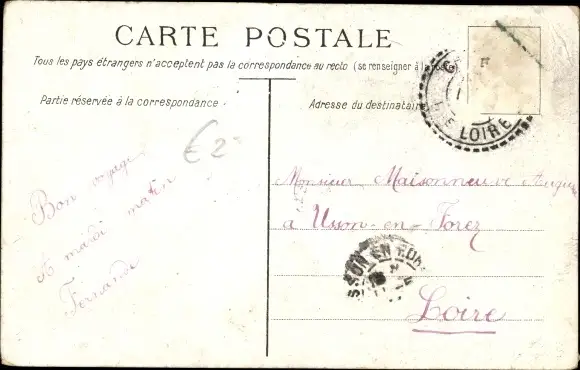 CARTE POSTALE
Tous les pays étrangers n'acceptent pas la correspondance au recto (se renseigner à la poste
Partie réservée à la correspondance
Adresse du destinataire
€ 2
LOIRE
Bon voyage
A mardi matin
Fernande
Monsieur Maisonneuve
à Usson-en-Forez
USSON EN FOREZ
Loire